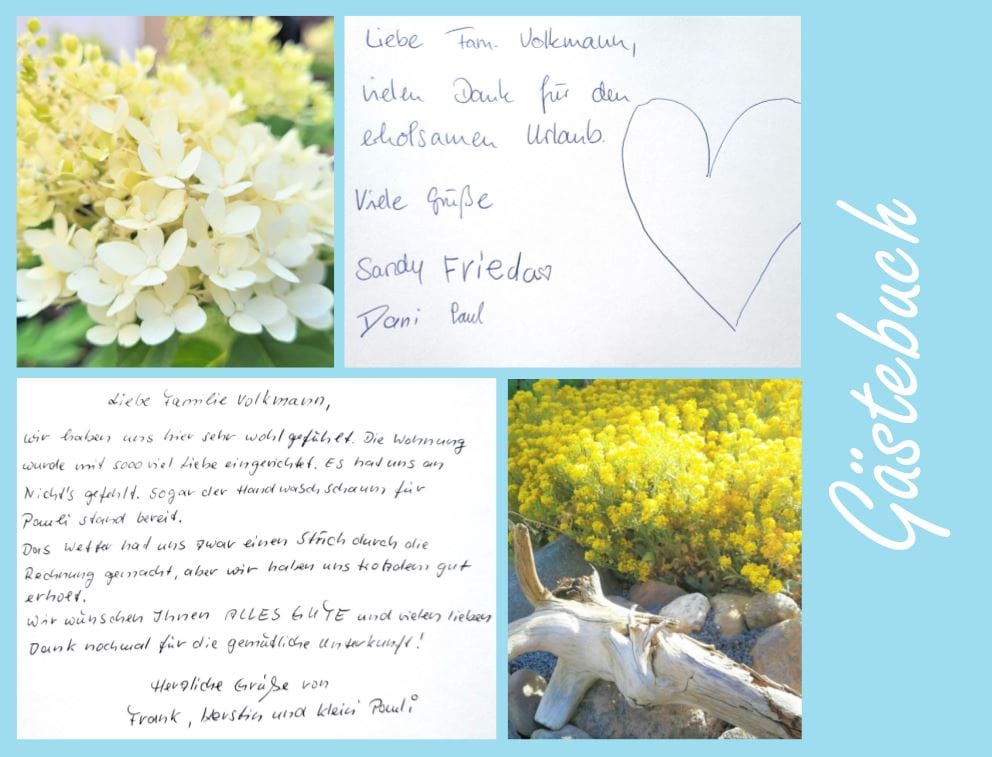 Liebe Fam. Volkmann,
vielen Dank für den
erholsamen Urlaub.
Viele Grüße
Sandy Frieda
Dani Paul
Liebe Familie Volkmann,
wir haben uns hier sehr wohl gefühlt. Die Wohnung
wurde mit sooo viel Liebe eingerichtet. Es hat uns an
Nicht's gefehlt. Sogar der Handwaschschaum für
Pauli stand bereit.
Das Wetter hat uns zwar einen Strich durch die
Rechnung gemacht, aber wir haben uns trotzdem gut
erholt.
Wir wünschen Ihnen ALLES GUTE und vielen lieben
Dank nochmal für die gemütliche Unterkunft!
Herzliche Grüße von
Frank, Kerstin und klein Pauli
Gästebuch